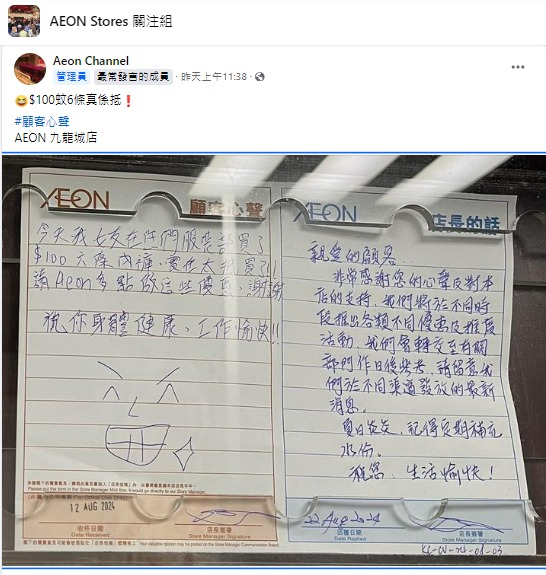 AEON Stores 關注組
Aeon Channel
管理員 最常發言的成員 · 昨天上午11:38 ·
$100蚊6條真係抵
#顧客心聲
AEON 九龍城店
AEON 顧客心聲
今天我女友在你們服裝部買了
$100 六條內褲,實在太抵買了!!
請Aeon多點做這些優惠,謝謝
祝你身體健康、工作愉快!!
Please put the form in the Store Manager Mail Box. It would go directly to our Store Manager.
12 AUG 2024
收件日期
Date Received
店長簽署
Store Manager Signature
Your valuable opinion may be posted on the Store Manager Communication Board.
AEON 店長的話
親愛的顧客
非常感謝您的心聲及對本
店的支持,我們將於不同時
段推出各類不同優惠及推廣
活動,我們會轉交至有關
部門作日後參考,請留意我
們於不同渠道發放的最新
消息。
夏日炎炎,記得定期補充
水份。
祝您:生活愉快!
22 Aug 2024
回覆日期
Date Replied
店長簽署
Store Manager Signature